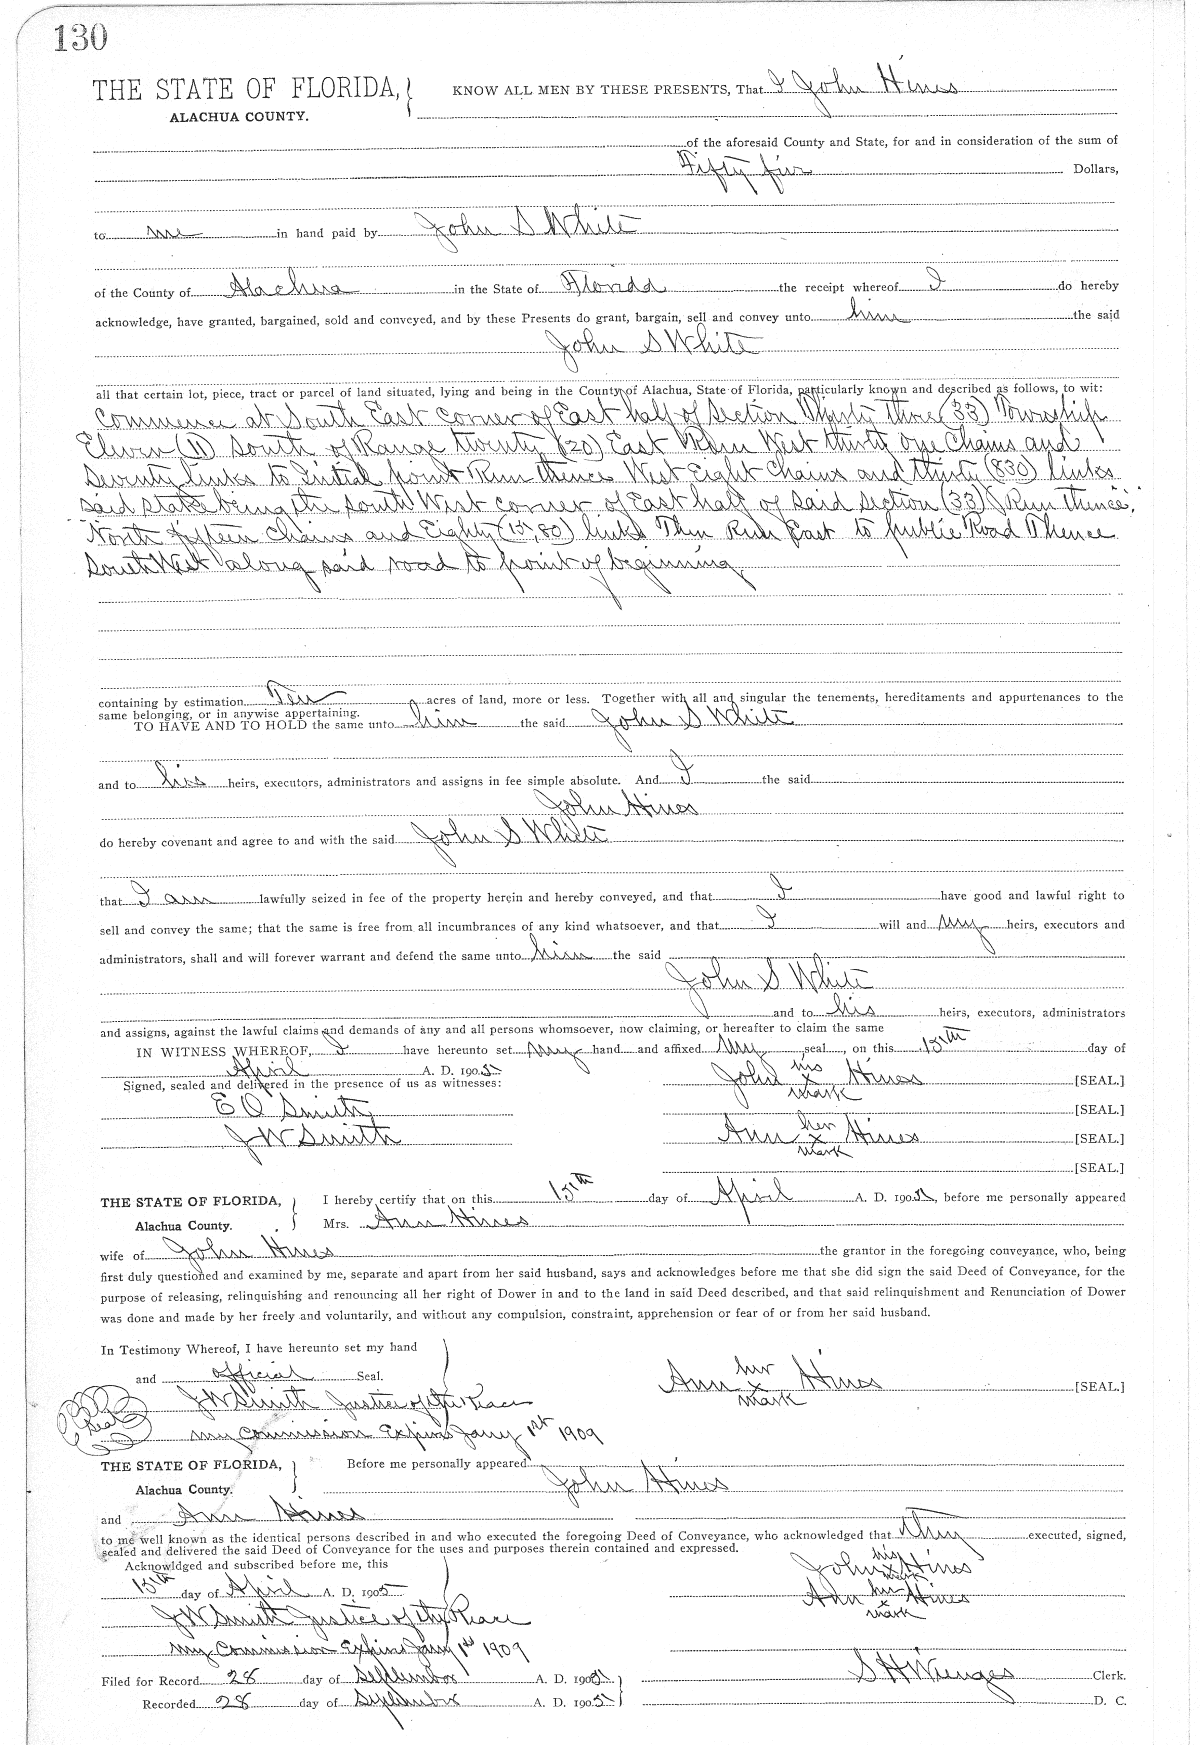 130
THE STATE OF FLORIDA, KNOW ALL MEN BY THESE PRESENTS, That I John Hines
ALACHUA COUNTY.
of the aforesaid County and State, for and in consideration of the sum of
Fifty five Dollars,
to me in hand paid by John S White
of the County of Alachua in the State of Florida the receipt whereof I do hereby
acknowledge, have granted, bargained, sold and conveyed, and by these Presents do grant, bargain, sell and convey unto him the said
John S White
all that certain lot, piece, tract or parcel of land situated, lying and being in the County of Alachua, State of Florida, particularly known and described as follows, to wit:
Commence at South East corner of East half of Section thirty three (33) Township
Eleven (11) South of Range twenty (20) East Run West thirty one Chains and
Seventy links to Initial point Run thence West Eight Chains and thirty (830) links
said stake being the South West corner of East half of said section (33) Run thence
North fifteen Chains and Eighty (15,80) links Then Run East to public Road Thence
South West along said road to point of beginning
containing by estimation Ten acres of land, more or less. Together with all and singular the tenements, hereditaments and appurtenances to the
same belonging, or in anywise appertaining.
TO HAVE AND TO HOLD the same unto him the said John S White
and to his heirs, executors, administrators and assigns in fee simple absolute. And I the said
John Hines
do hereby covenant and agree to and with the said John S White
that I am lawfully seized in fee of the property herein and hereby conveyed, and that I have good and lawful right to
sell and convey the same; that the same is free from all incumbrances of any kind whatsoever, and that I will and my heirs, executors and
administrators, shall and will forever warrant and defend the same unto him the said
John S White
and to his heirs, executors, administrators
and assigns, against the lawful claims and demands of any and all persons whomsoever, now claiming, or hereafter to claim the same
IN WITNESS WHEREOF, I have hereunto set my hand and affixed my seal, on this 15th day of
April A. D. 1905
Signed, sealed and delivered in the presence of us as witnesses: John his x mark Hines [SEAL.]
E O Smith [SEAL.]
J W Smith Ann her x mark Hines [SEAL.]
[SEAL.]
THE STATE OF FLORIDA, I hereby certify that on this 15th day of April A. D. 1905, before me personally appeared
Alachua County. Mrs. Ann Hines
wife of John Hines the grantor in the foregoing conveyance, who, being
first duly questioned and examined by me, separate and apart from her said husband, says and acknowledges before me that she did sign the said Deed of Conveyance, for the
purpose of releasing, relinquishing and renouncing all her right of Dower in and to the land in said Deed described, and that said relinquishment and Renunciation of Dower
was done and made by her freely and voluntarily, and without any compulsion, constraint, apprehension or fear of or from her said husband.
In Testimony Whereof, I have hereunto set my hand
and official Seal. Ann her x mark Hines [SEAL.]
Seal J W Smith Justice of the Peace
My Commission Expires Jany 1st 1909
THE STATE OF FLORIDA, Before me personally appeared John Hines
Alachua County.
and Ann Hines
to me well known as the identical persons described in and who executed the foregoing Deed of Conveyance, who acknowledged that they executed, signed,
sealed and delivered the said Deed of Conveyance for the uses and purposes therein contained and expressed.
Acknowldged and subscribed before me, this John his x mark Hines
15th day of April A. D. 1905 Ann her x mark Hines
J W Smith Justice of the Peace
My Commission Expires Jany 1st 1909
Filed for Record 28 day of September A. D. 1905 S H Wienges Clerk.
Recorded 28 day of September A. D. 1905 D. C.